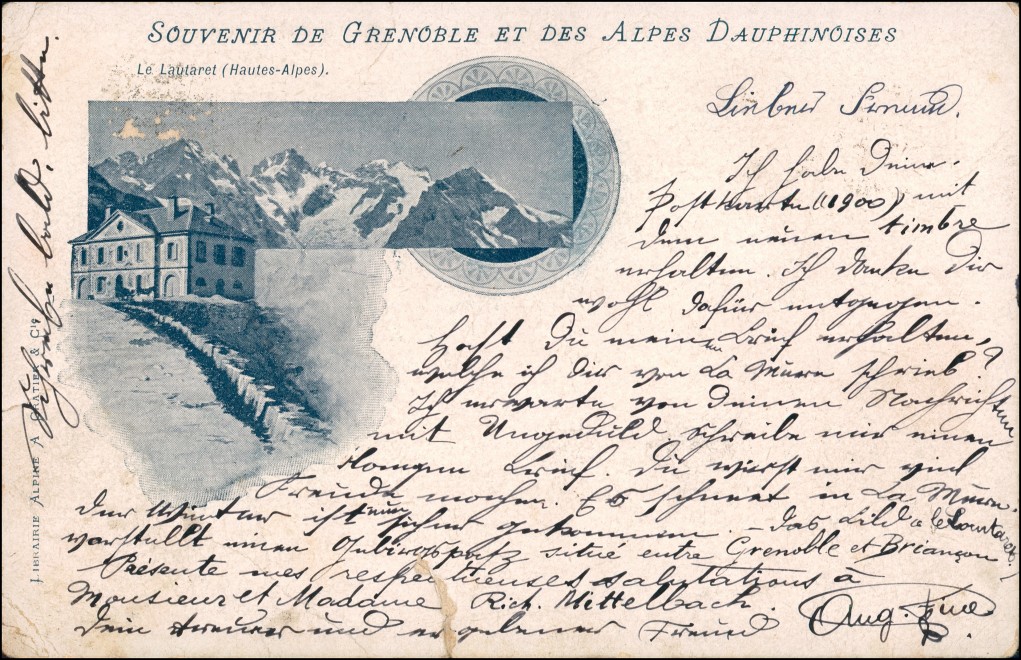 SOUVENIR DE GRENOBLE ET DES ALPES DAUPHINOISES
Le Lautaret (Hautes-Alpes).
Lieber Freund.
Ich habe Deine
Postkarte (1900) mit
dem neuen timbre
erhalten. Ich danke Dir
wohl dafür entgegen.
Hast Du meinen Brief erhalten,
welche ich Dir von La Mure schrieb?
Ich erwarte von Deinen Nachrichten
mit Ungeduld schreibe mir einen
langen Brief. Du wirst mir viel
Freude machen. Es schneet in La Mure.
Der Winter ist nun sicher gekommen – Das Bild à le Lautaret
vorstellt einen Gebirgspatz situé entre Grenoble et Briançon
Présente mes respectueuses salutations à
Monsieur et Madame Rich. Mittelbach.
Dein treuer und ergebener Freund
Aug.
Schreibe bald, bitte.
LIBRAIRIE ALPINE A. GRATIER & Cie